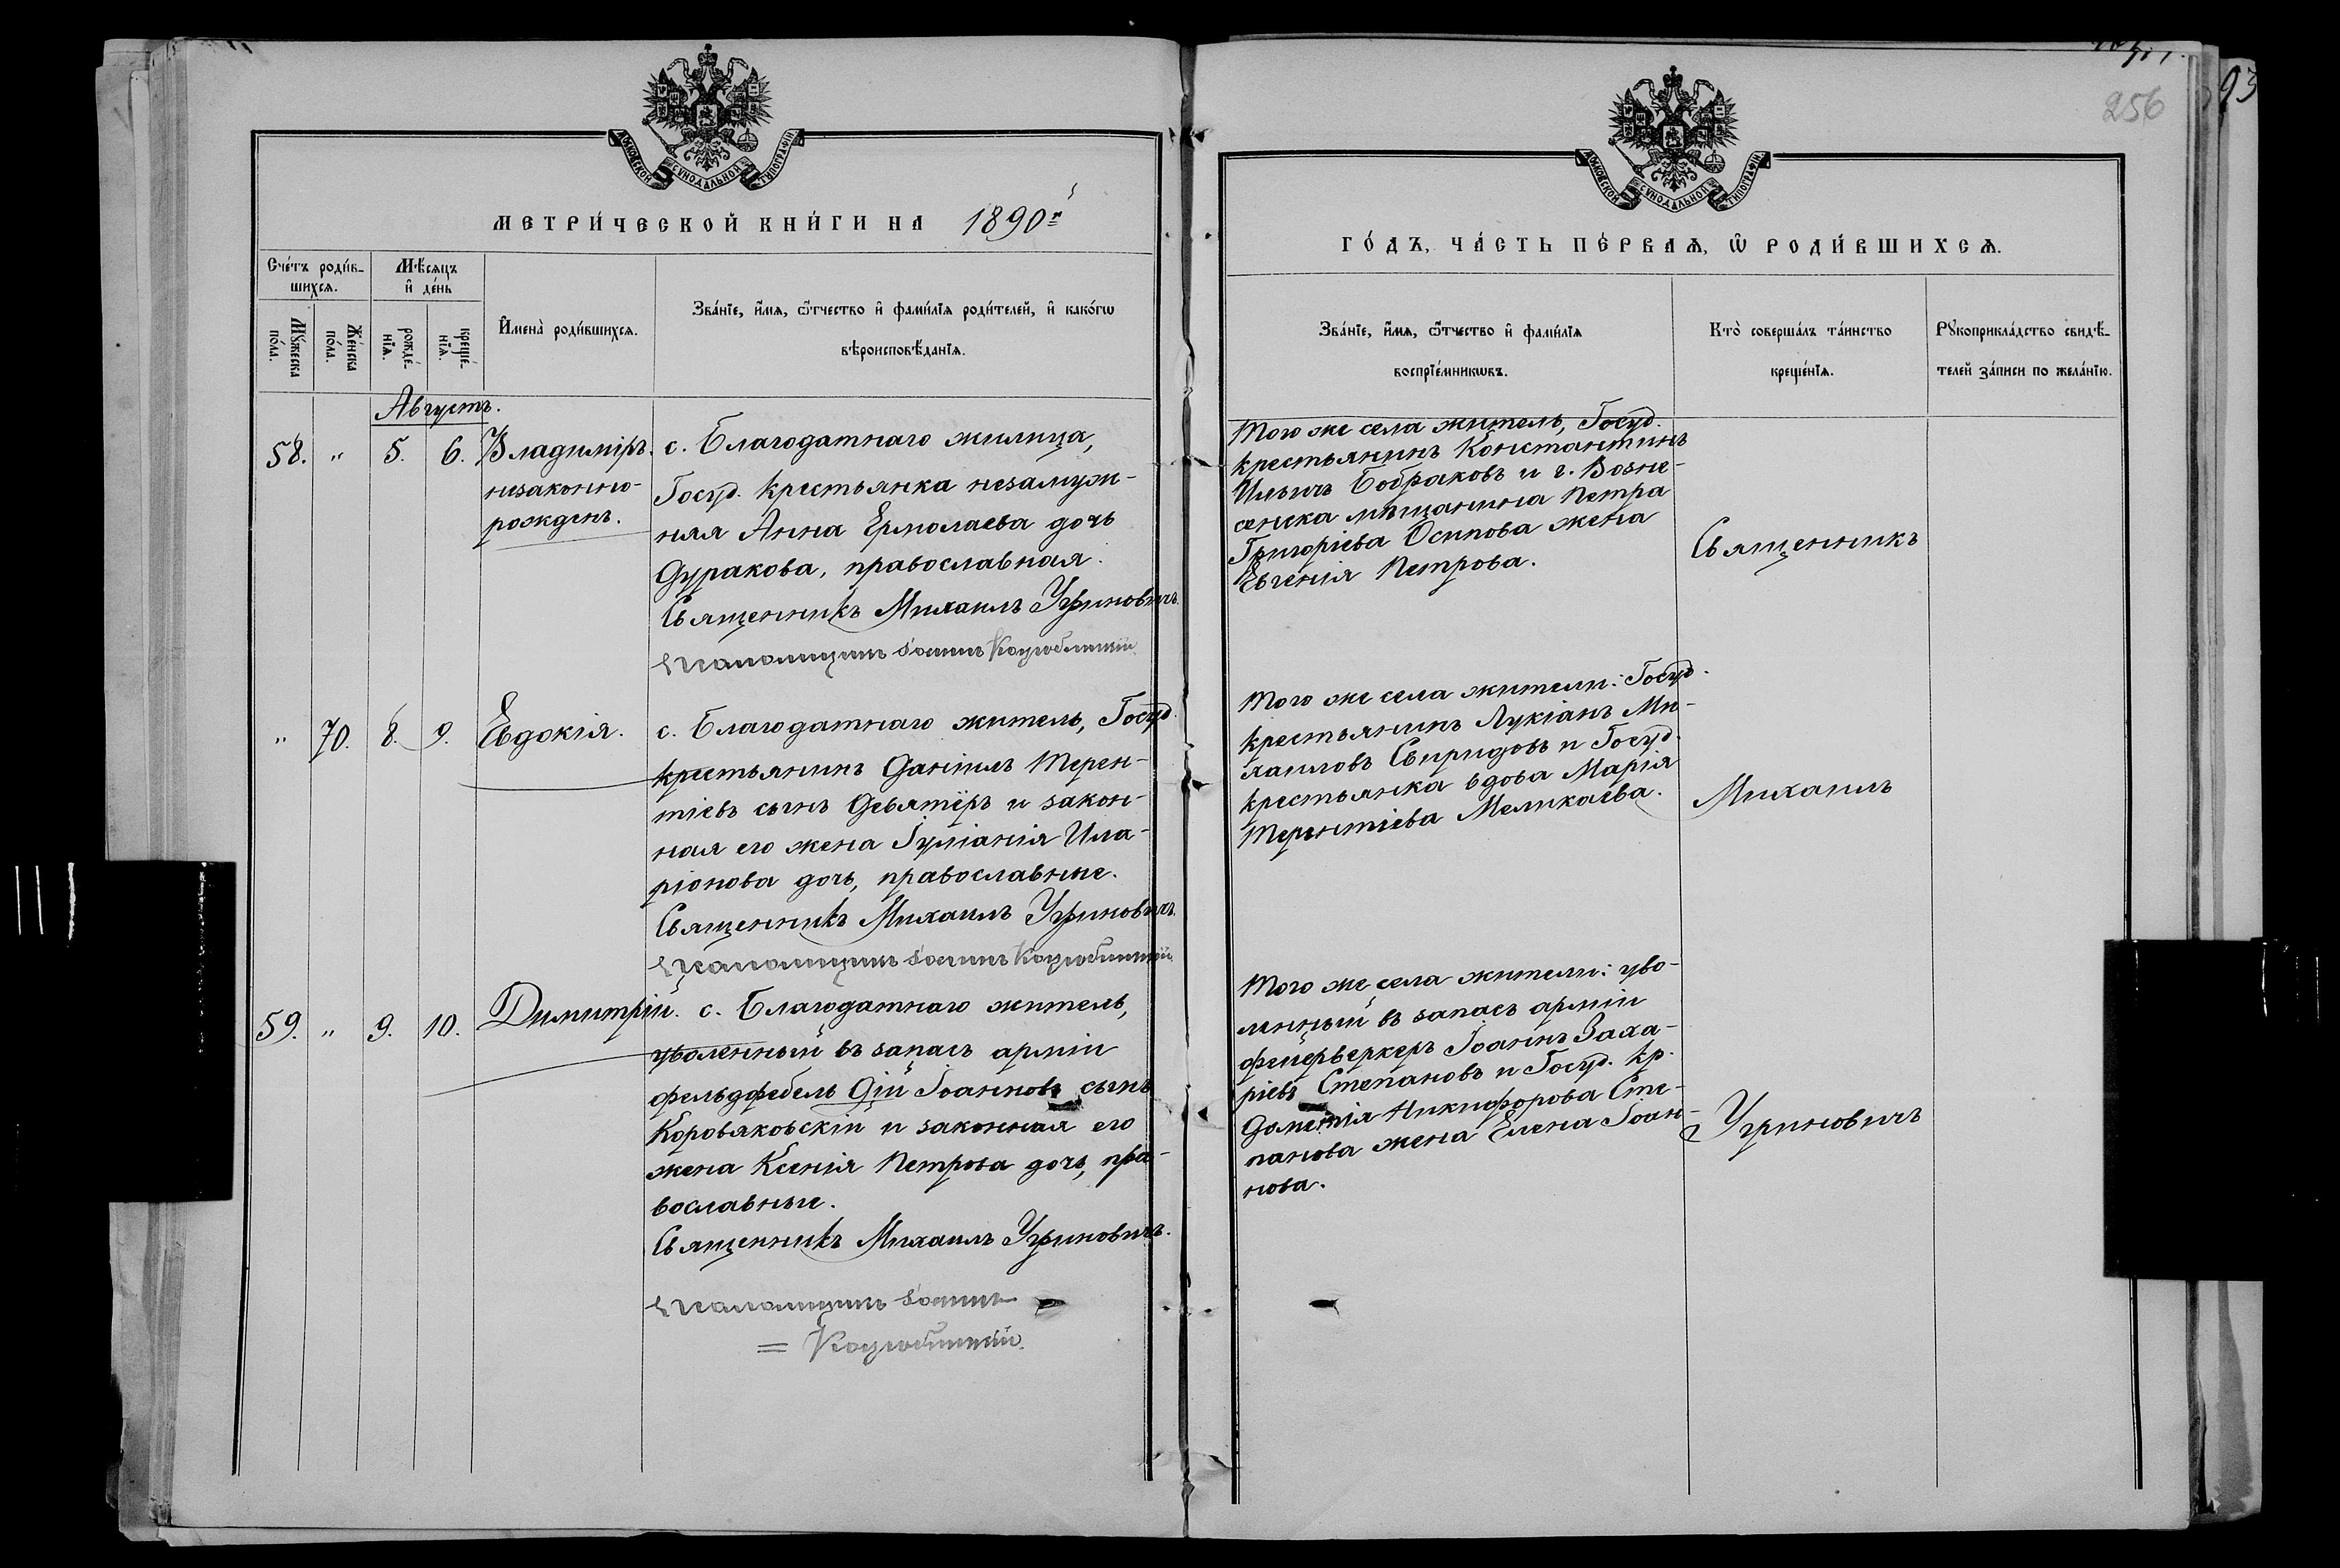 МОСКОВСКОЙ СѴНОДАЛЬНОЙ ТИПОГРАФІИ
МЕТРИ́ЧЕСКОЙ КНИ́ГИ НА 1890 й
Сче́тъ роди́в-
шихсѧ.
Мѣ́сѧцъ
и҆ де́нь
Мꙋ́жеска
по́ла.
Же́нска
по́ла.
рожде́-
нїѧ.
креще́-
нїѧ.
И҆мена̀ роди́вшихсѧ.
Зва́нїе, и҆́мѧ, ѻ҆́тчество и҆ фами́лїѧ роди́телей, и҆ како́гѡ
вѣроисповѣ́данїѧ.
Августъ.
58. " 5. 6. Владиміръ.
незаконно-
рожденъ.
с. Благодатнаго жилица,
Госуд. крестьянка незамуж-
няя Анна Ермолаева дочь
Дуракова, православная.
Священникъ Михаилъ Угриновичъ.
Псаломщикъ Іоаннъ Коцюбинскій.
" 70. 8. 9. Евдокія.
с. Благодатнаго житель, Госуд.
крестьянинъ Даніилъ Терен-
тіевъ сынъ Девятёръ и закон-
ная его жена Іуліанія Ила-
ріонова дочь, православные.
Священникъ Михаилъ Угриновичъ.
Псаломщикъ Іоаннъ Коцюбинскій.
59. " 9. 10. Димитрій.
с. Благодатнаго житель,
уволенный въ запасъ арміи
фельдфебель Дій Іоанновъ сынъ
Коровяковскій и законная его
жена Ксенія Петрова дочь, пра-
вославные.
Священникъ Михаилъ Угриновичъ.
Псаломщикъ Іоаннъ
= Коцюбинскій.
256
93
МОСКОВСКОЙ СѴНОДАЛЬНОЙ ТИПОГРАФІИ
ГО́ДЪ, ЧА́СТЬ ПЕ́РВАѦ, Ѿ РОДИ́ВШИХСѦ.
Зва́нїе, и҆́мѧ, ѻ҆́тчество и҆ фами́лїѧ
воспрїе́мникѡвъ.
Кто̀ соверша́лъ та́инство
креще́нїѧ.
Рꙋкоприкла́дство свидѣ́-
телей за́писи по жела́нїю.
Того же села житель, Госуд.
крестьянинъ Константинъ
Ильичъ Бобраковъ и г. Возне-
сенска мѣщанина Петра
Григоріева Осипова жена
Евгенія Петрова.
Того же села жители: Госуд.
крестьянинъ Лукіанъ Ми-
хаиловъ Свиридовъ и Госуд.
крестьянка вдова Марія
Терентіева Меликаева.
Того же села жители: уво-
ленный въ запасъ арміи
фейерверкеръ Іоаннъ Заха-
ріевъ Степановъ и Госуд. кр.
Дометія Никифорова Сте-
панова жена Елена Іоан-
нова.
Священникъ
Михаилъ
Угриновичъ